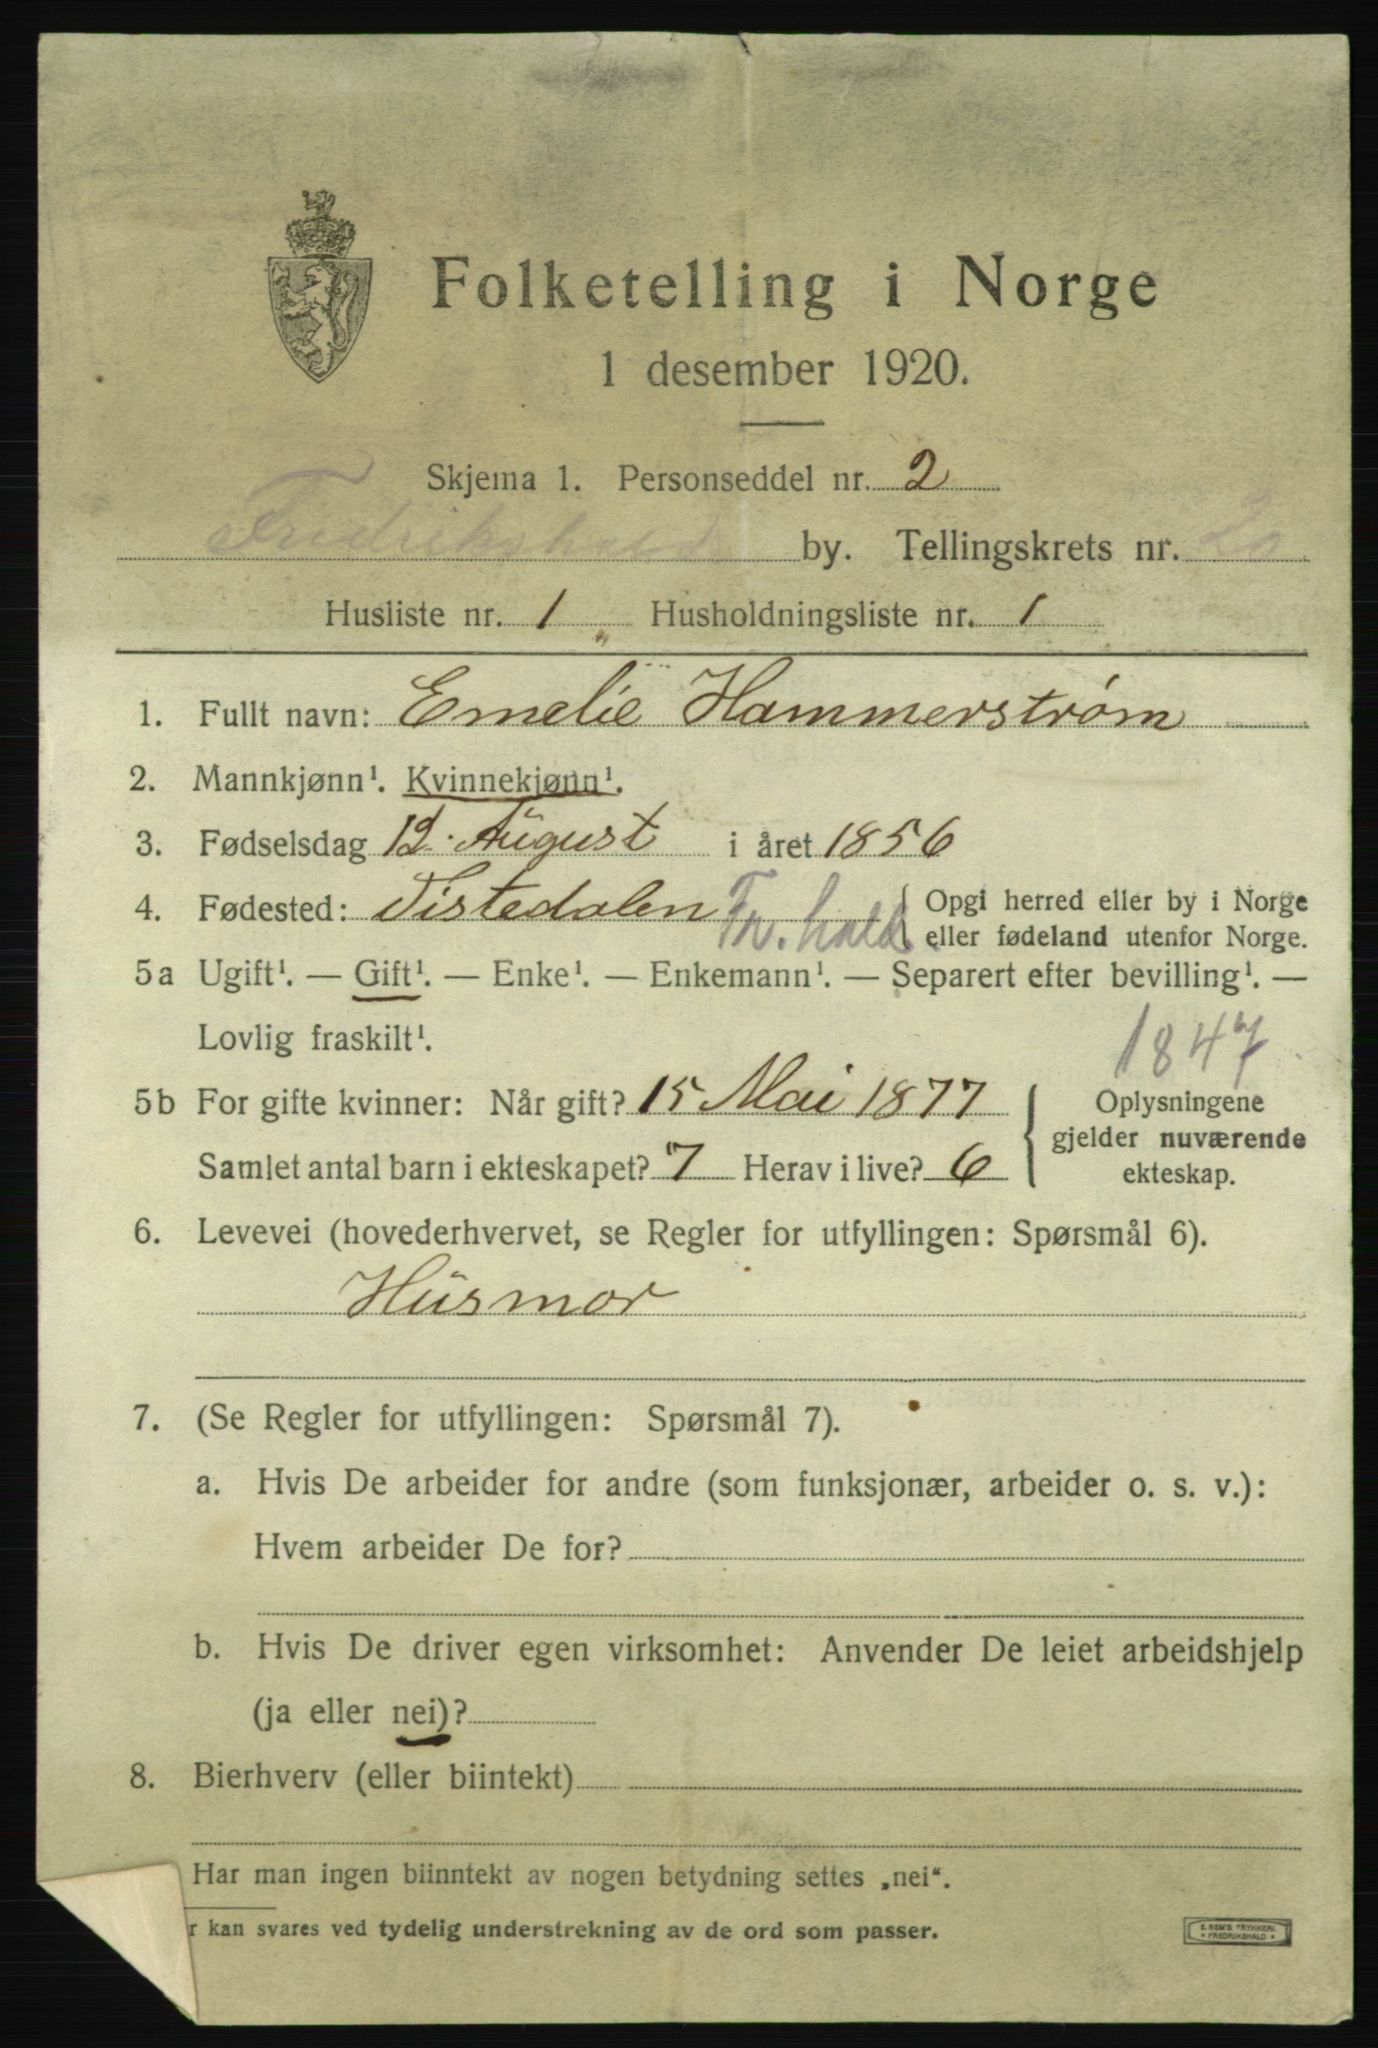 Folketelling i Norge
1 desember 1920.
Skjema 1. Personseddel nr. 2
Fredrikshald by. Tellingskrets nr. 20
Husliste nr. 1 Husholdningsliste nr. 1
1. Fullt navn: Emelie Hammerstrøm
2. Mannkjønn¹. Kvinnekjønn¹.
3. Fødselsdag 12. August i året 1856
4. Fødested: Tistedalen Fr.hald. { Opgi herred eller by i Norge
eller fødeland utenfor Norge.
5a Ugift¹. — Gift¹. — Enke¹. — Enkemann¹. — Separert efter bevilling¹. —
Lovlig fraskilt¹.
1847
5b For gifte kvinner: Når gift? 15 Mai 1877 Oplysningene
gjelder nuværende
Samlet antal barn i ekteskapet? 7 Herav i live? 6 ekteskap.
6. Levevei (hovederhvervet, se Regler for utfyllingen: Spørsmål 6).
Husmor
7. (Se Regler for utfyllingen: Spørsmål 7).
a. Hvis De arbeider for andre (som funksjonær, arbeider o. s. v.):
Hvem arbeider De for?
b. Hvis De driver egen virksomhet: Anvender De leiet arbeidshjelp
(ja eller nei)?
8. Bierhverv (eller biintekt)
Har man ingen biinntekt av nogen betydning settes „nei“.
r kan svares ved tydelig understrekning av de ord som passer.
E. SEM'S TRYKKERI
• FREDRIKSHALD •